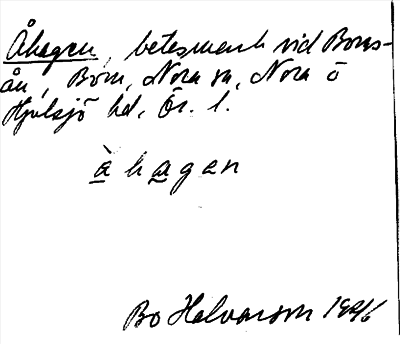 Åhagen, betesmark vid Borns-
ån, Born, Nora sn, Nora o
Hjulsjö hd, Ör. l.
å hagen
Bo Halvarson